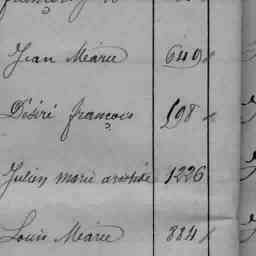 Jean Marie 649
Désiré françois 598
Julien marie aristide 1226
Louis Marie 884